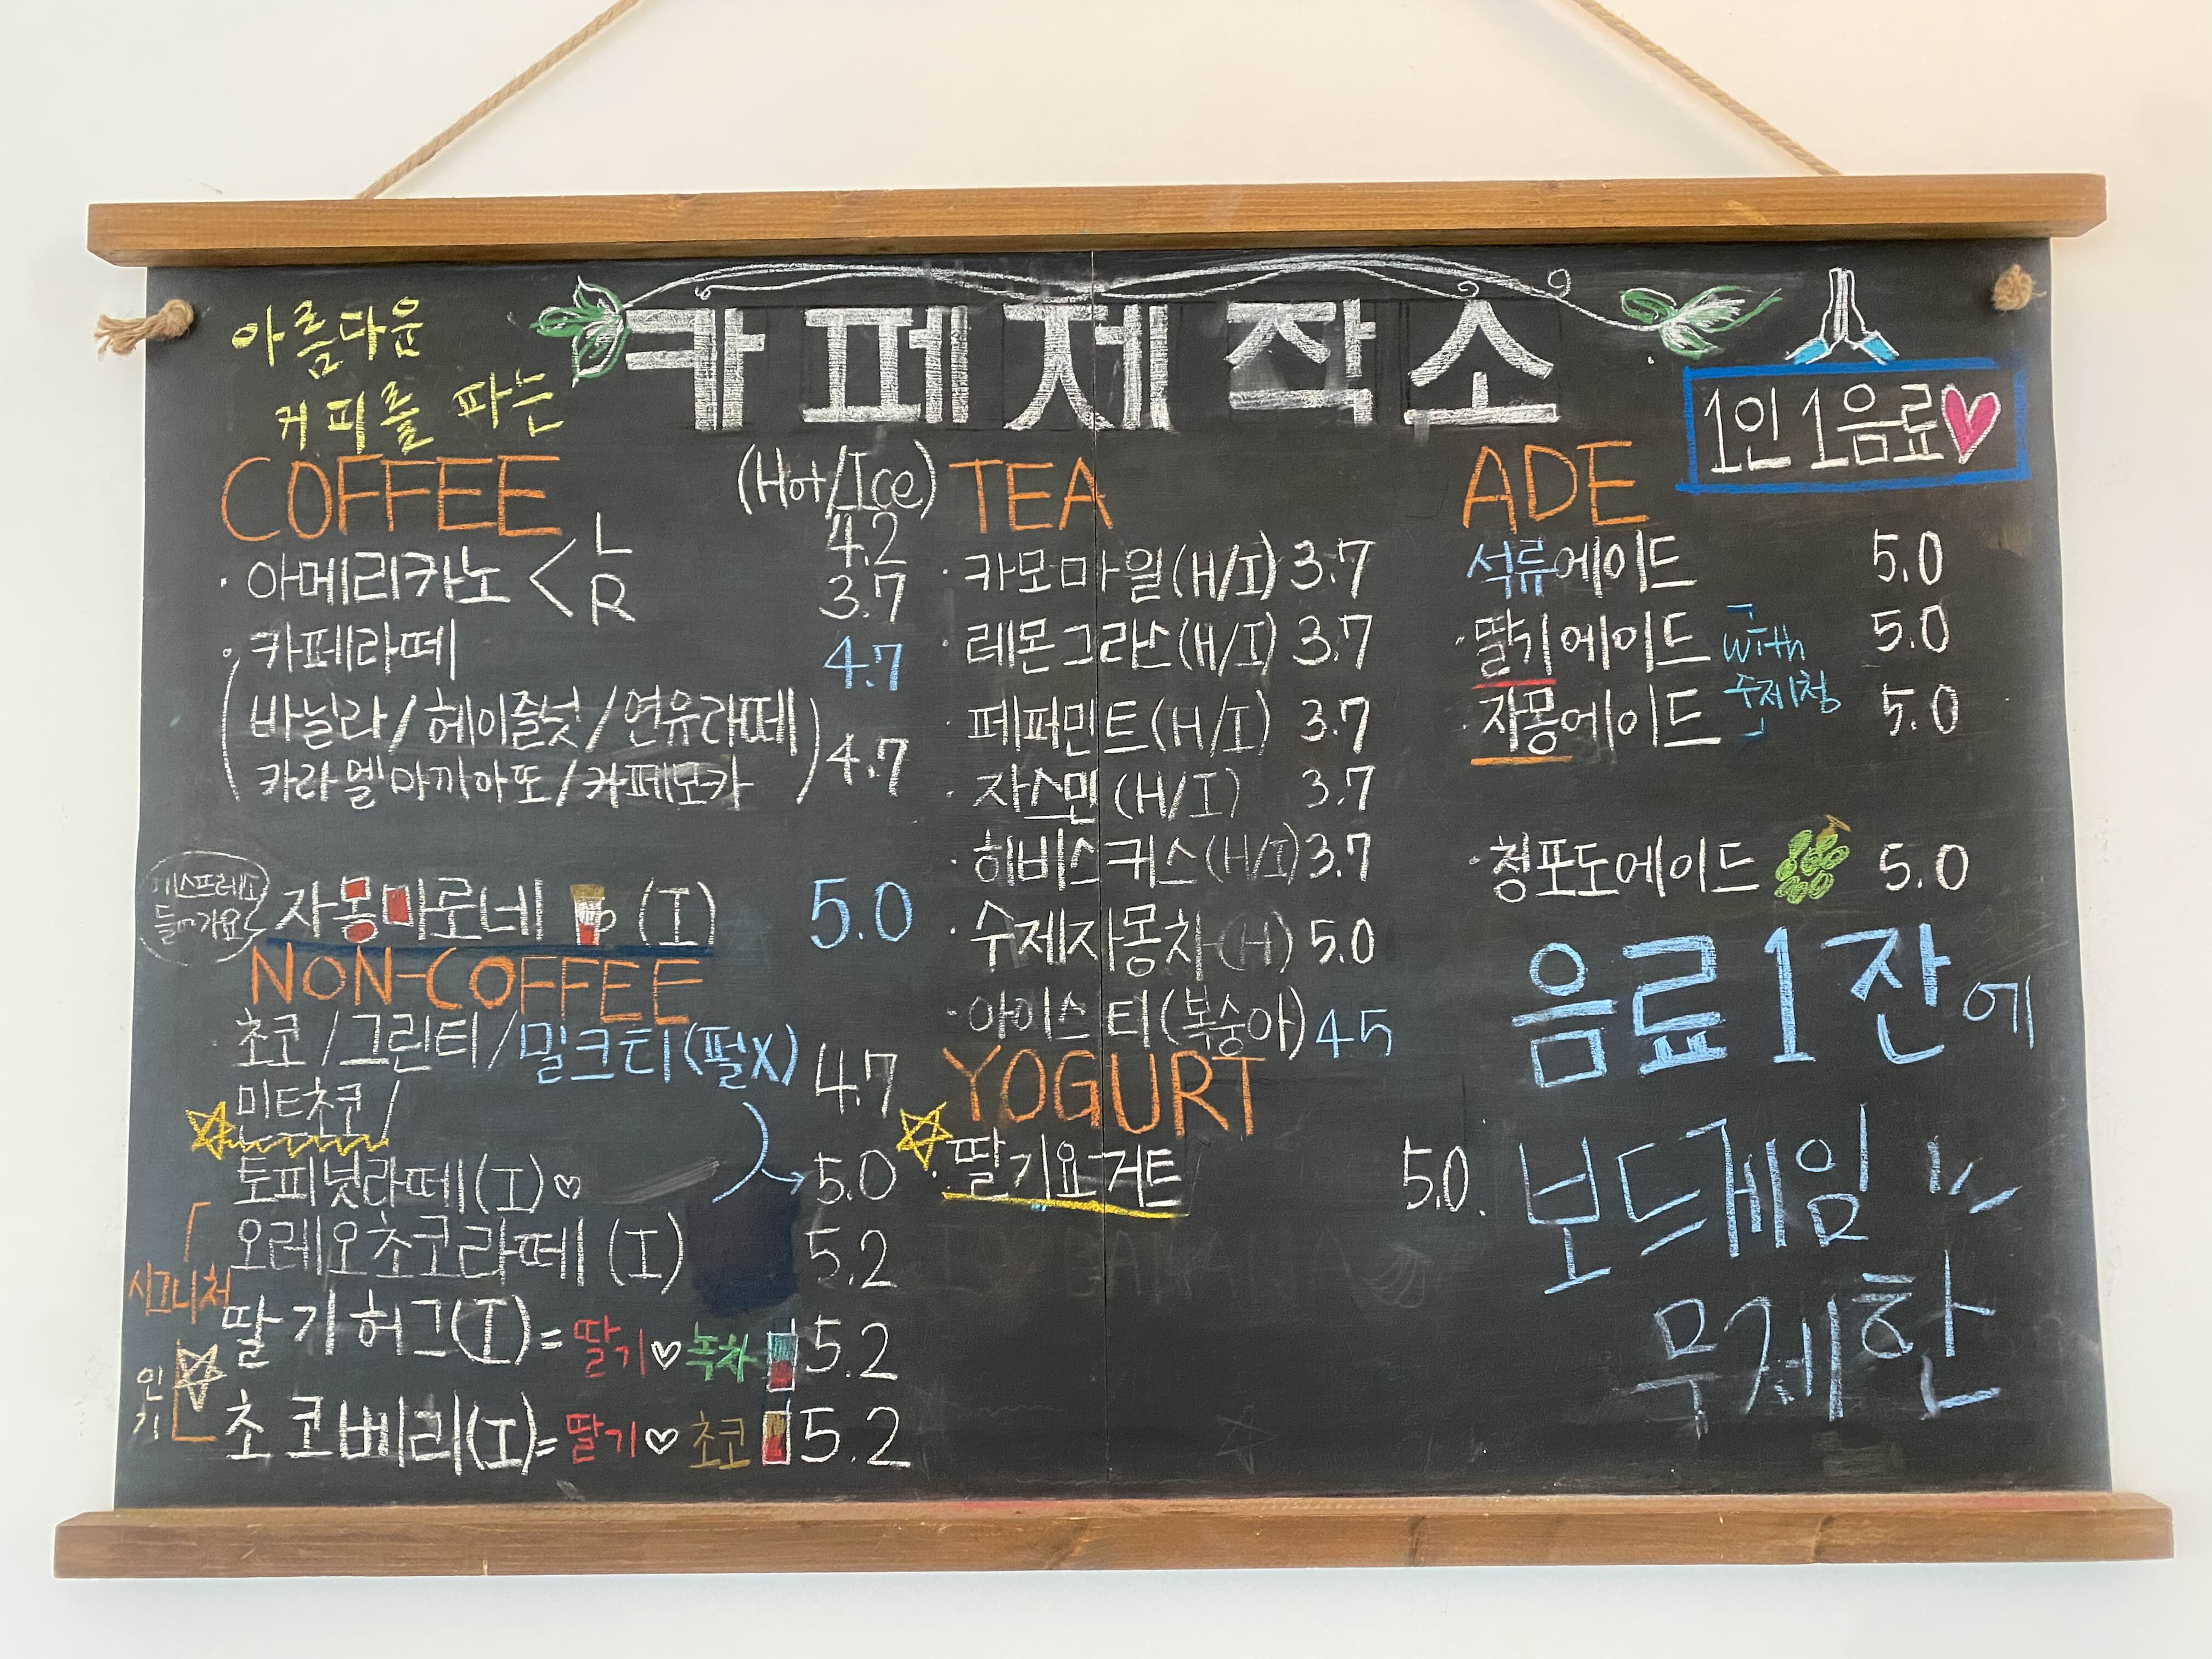 아름다운
커피를 파는
카페제작소
1인 1음료♡
COFFEE (Hot/Ice)
· 아메리카노 < L 4.2
R 3.7
· 카페라떼 4.7
(바닐라/헤이즐넛/연유라떼
카라멜마끼아또/카페모카) 4.7
에스프레소
들어가요
자몽마로네 (I) 5.0
NON-COFFEE
· 초코/그린티/밀크티(펄X) 4.7
민트초코/
토피넛라떼(I)♡ 5.0
오레오초코라떼 (I) 5.2
시그니처
딸기허그(I)= 딸기♡녹차 5.2
인기
초코베리(I)= 딸기♡초코 5.2
TEA
· 카모마일(H/I) 3.7
· 레몬그라스(H/I) 3.7
· 페퍼민트(H/I) 3.7
· 자스민(H/I) 3.7
· 히비스커스(H/I) 3.7
· 수제자몽차(H) 5.0
· 아이스티(복숭아) 45
YOGURT
· 딸기요거트 5.0
ADE
석류에이드 5.0
· 딸기에이드 5.0
· 자몽에이드 5.0
「with
수제청」
· 청포도에이드 5.0
음료1잔에
보드게임
무제한